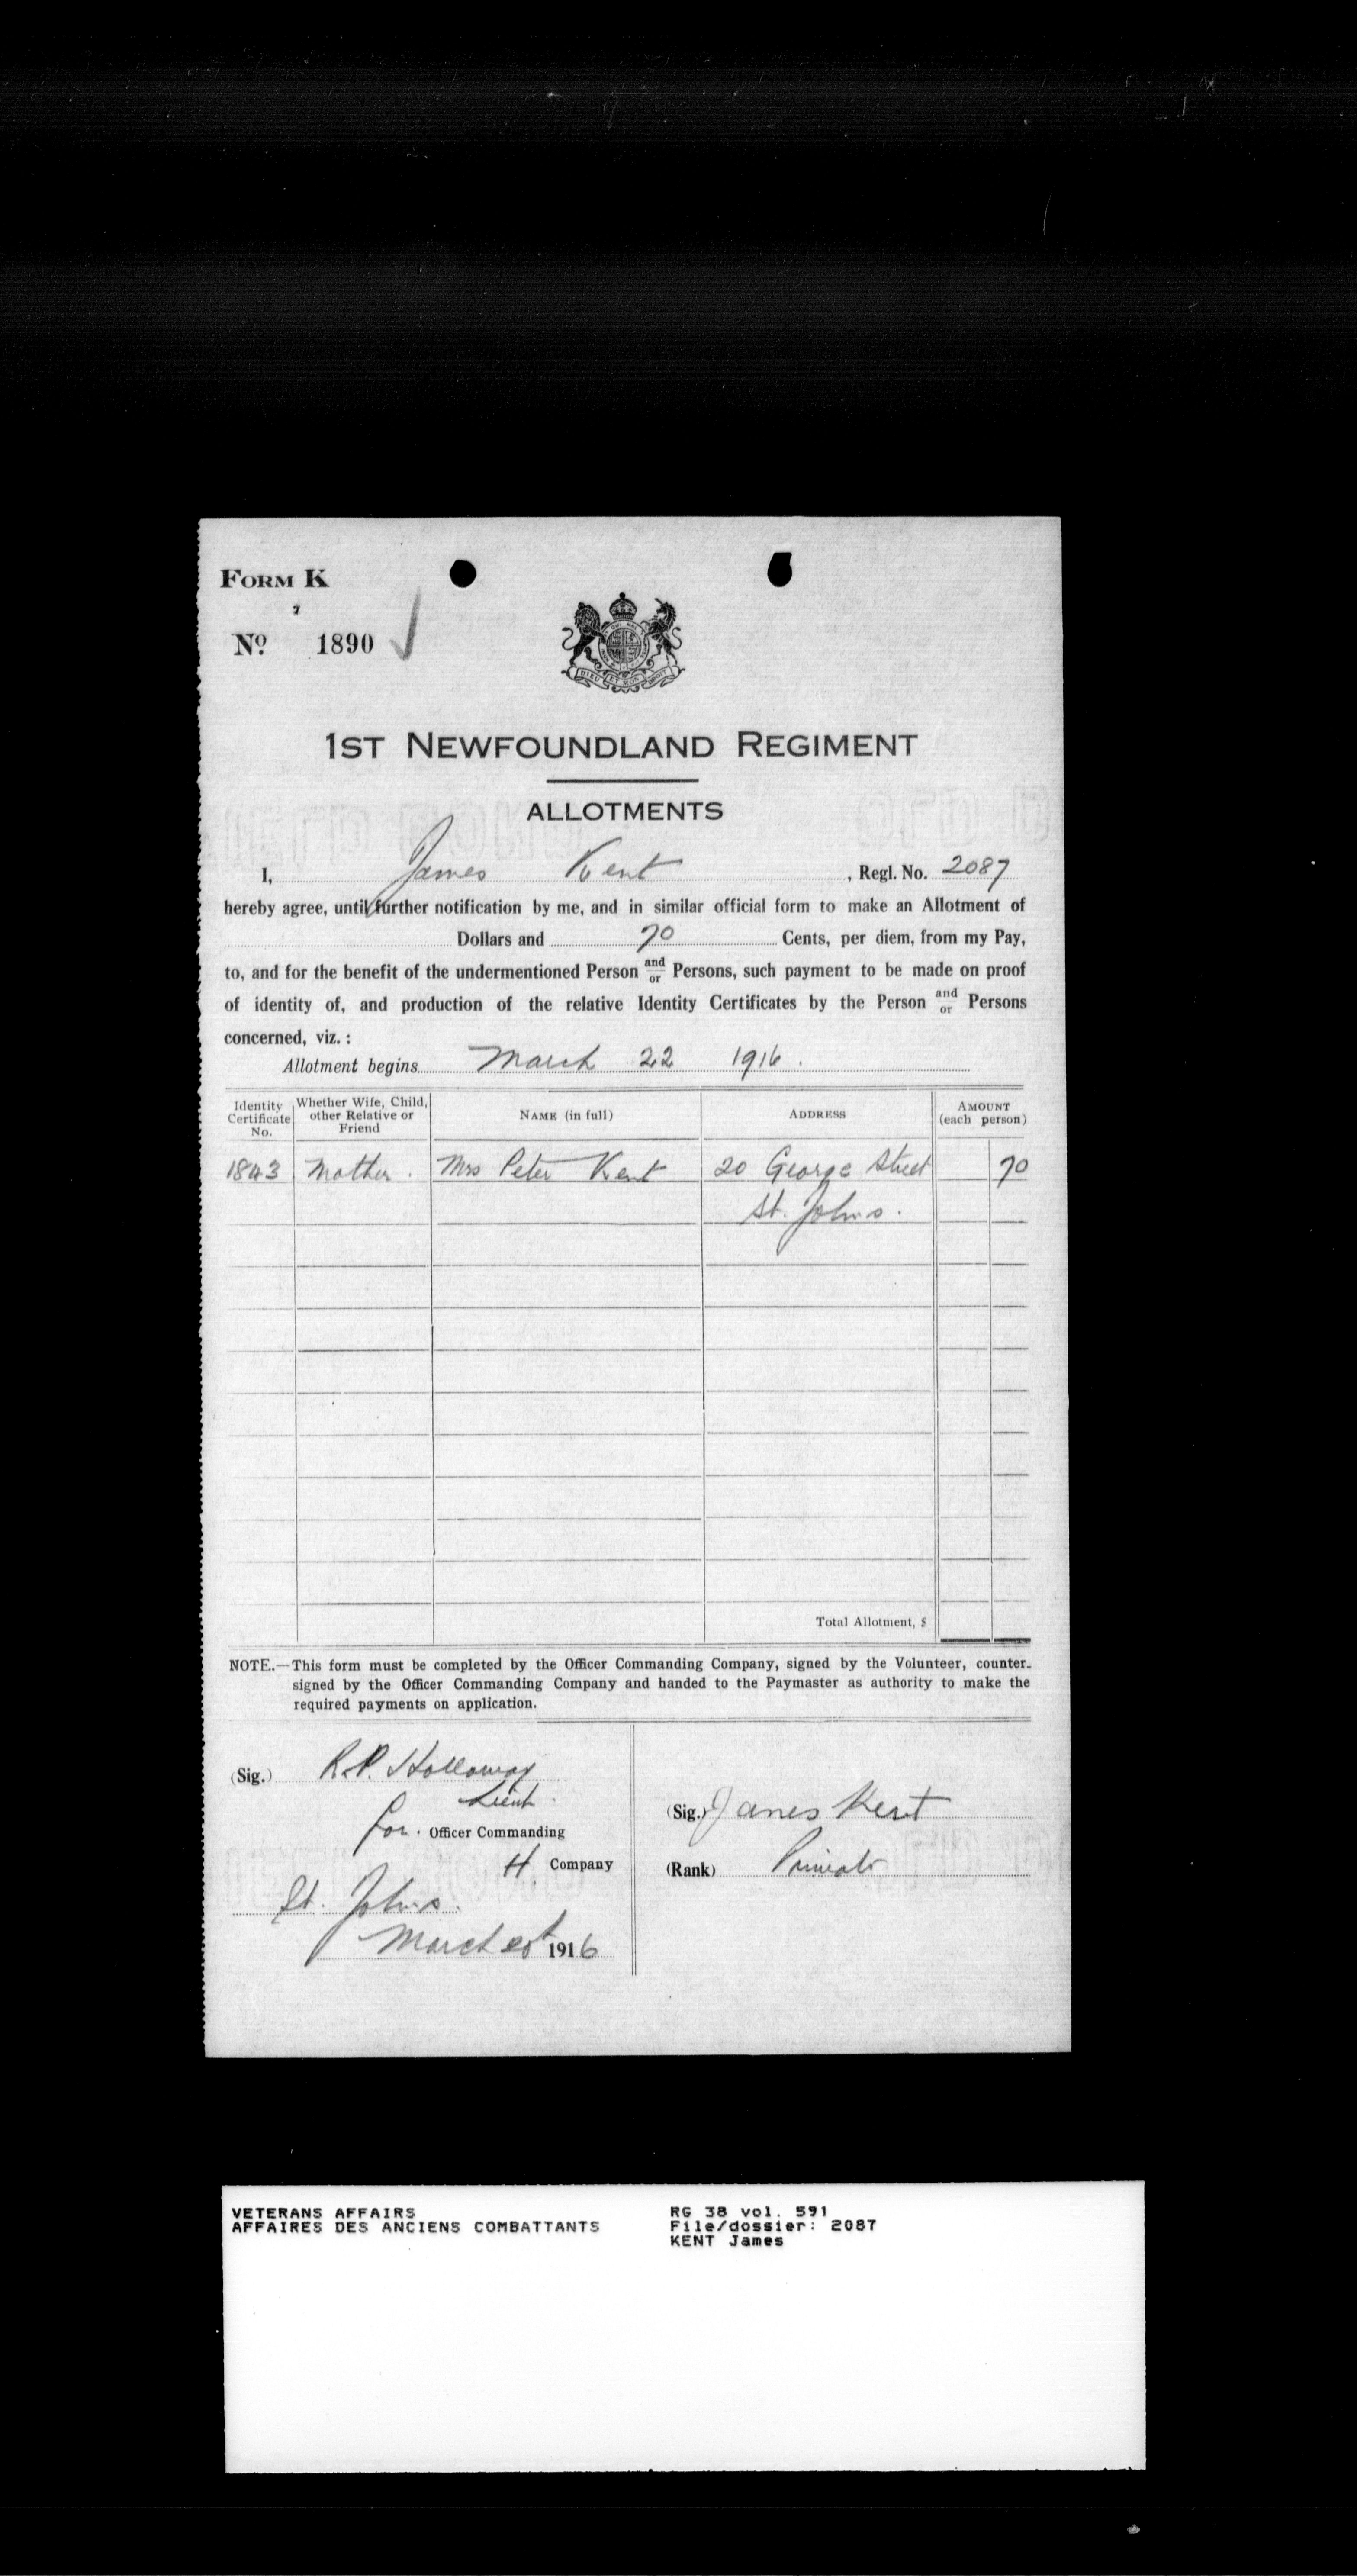 FORM K
Nº 1890
DIEU ET MON DROIT
1ST NEWFOUNDLAND REGIMENT
ALLOTMENTS
I, James Kent, Regl. No. 2087
hereby agree, until further notification by me, and in similar official form to make an Allotment of
Dollars and 70 Cents, per diem, from my Pay,
to, and for the benefit of the undermentioned Person and/or Persons, such payment to be made on proof
of identity of, and production of the relative Identity Certificates by the Person and/or Persons
concerned, viz. :
Allotment begins March 22 1916.
Identity Certificate No. Whether Wife, Child, other Relative or Friend NAME (in full) ADDRESS AMOUNT (each person)
1843 Mother. Mrs Peter Kent 20 George Street 70
St. Johns.
Total Allotment, $
NOTE.—This form must be completed by the Officer Commanding Company, signed by the Volunteer, counter-
signed by the Officer Commanding Company and handed to the Paymaster as authority to make the
required payments on application.
(Sig.) R.P. Holloway
Lieut.
for. Officer Commanding
H. Company
St. Johns.
March 1916
(Sig.) James Kent
(Rank) Private
VETERANS AFFAIRS
AFFAIRES DES ANCIENS COMBATTANTS
RG 38 vol. 591
File/dossier: 2087
KENT James